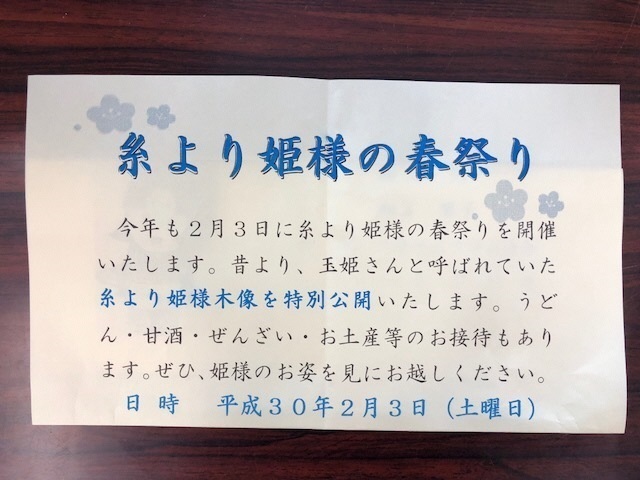 糸より姫様の春祭り
今年も２月３日に糸より姫様の春祭りを開催
いたします。昔より、玉姫さんと呼ばれていた
糸より姫様木像を特別公開いたします。うど
ん・甘酒・ぜんざい・お土産等のお接待もあり
ます。ぜひ、姫様のお姿を見にお越しください。
日 時　平成３０年２月３日（土曜日）